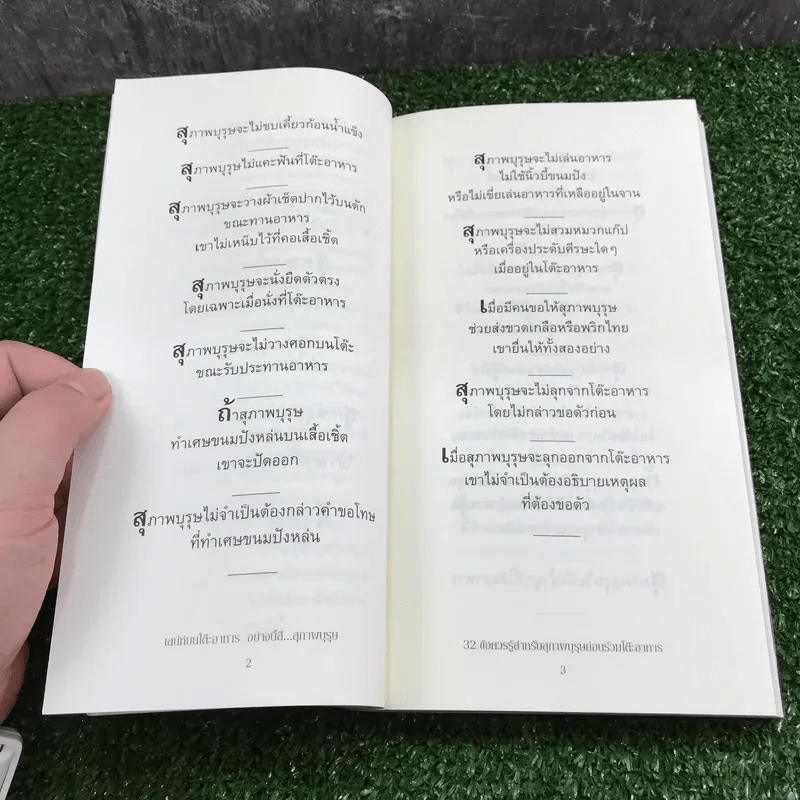 สุภาพบุรุษจะไม่ขบเคี้ยวก้อนน้ำแข็ง
สุภาพบุรุษไม่แคะฟันที่โต๊ะอาหาร
สุภาพบุรุษจะวางผ้าเช็ดปากไว้บนตัก
ขณะทานอาหาร
เขาไม่เหน็บไว้ที่คอเสื้อเชิ้ต
สุภาพบุรุษจะนั่งยืดตัวตรง
โดยเฉพาะเมื่อนั่งที่โต๊ะอาหาร
สุภาพบุรุษจะไม่วางศอกบนโต๊ะ
ขณะรับประทานอาหาร
ถ้าสุภาพบุรุษ
ทำเศษขนมปังหล่นบนเสื้อเชิ้ต
เขาจะปัดออก
สุภาพบุรุษไม่จำเป็นต้องกล่าวคำขอโทษ
ที่ทำเศษขนมปังหล่น
เสน่ห์บนโต๊ะอาหาร อย่างนี้สิ...สุภาพบุรุษ
2
สุภาพบุรุษจะไม่เล่นอาหาร
ไม่ใช้นิ้วบี้ขนมปัง
หรือไม่เขี่ยเล่นอาหารที่เหลืออยู่ในจาน
สุภาพบุรุษจะไม่สวมหมวกแก๊ป
หรือเครื่องประดับศีรษะใดๆ
เมื่ออยู่ในโต๊ะอาหาร
เมื่อมีคนขอให้สุภาพบุรุษ
ช่วยส่งขวดเกลือหรือพริกไทย
เขายื่นให้ทั้งสองอย่าง
สุภาพบุรุษจะไม่ลุกจากโต๊ะอาหาร
โดยไม่กล่าวขอตัวก่อน
เมื่อสุภาพบุรุษจะลุกออกจากโต๊ะอาหาร
เขาไม่จำเป็นต้องอธิบายเหตุผล
ที่ต้องขอตัว
32 ข้อควรรู้สำหรับสุภาพบุรุษก่อนร่วมโต๊ะอาหาร
3